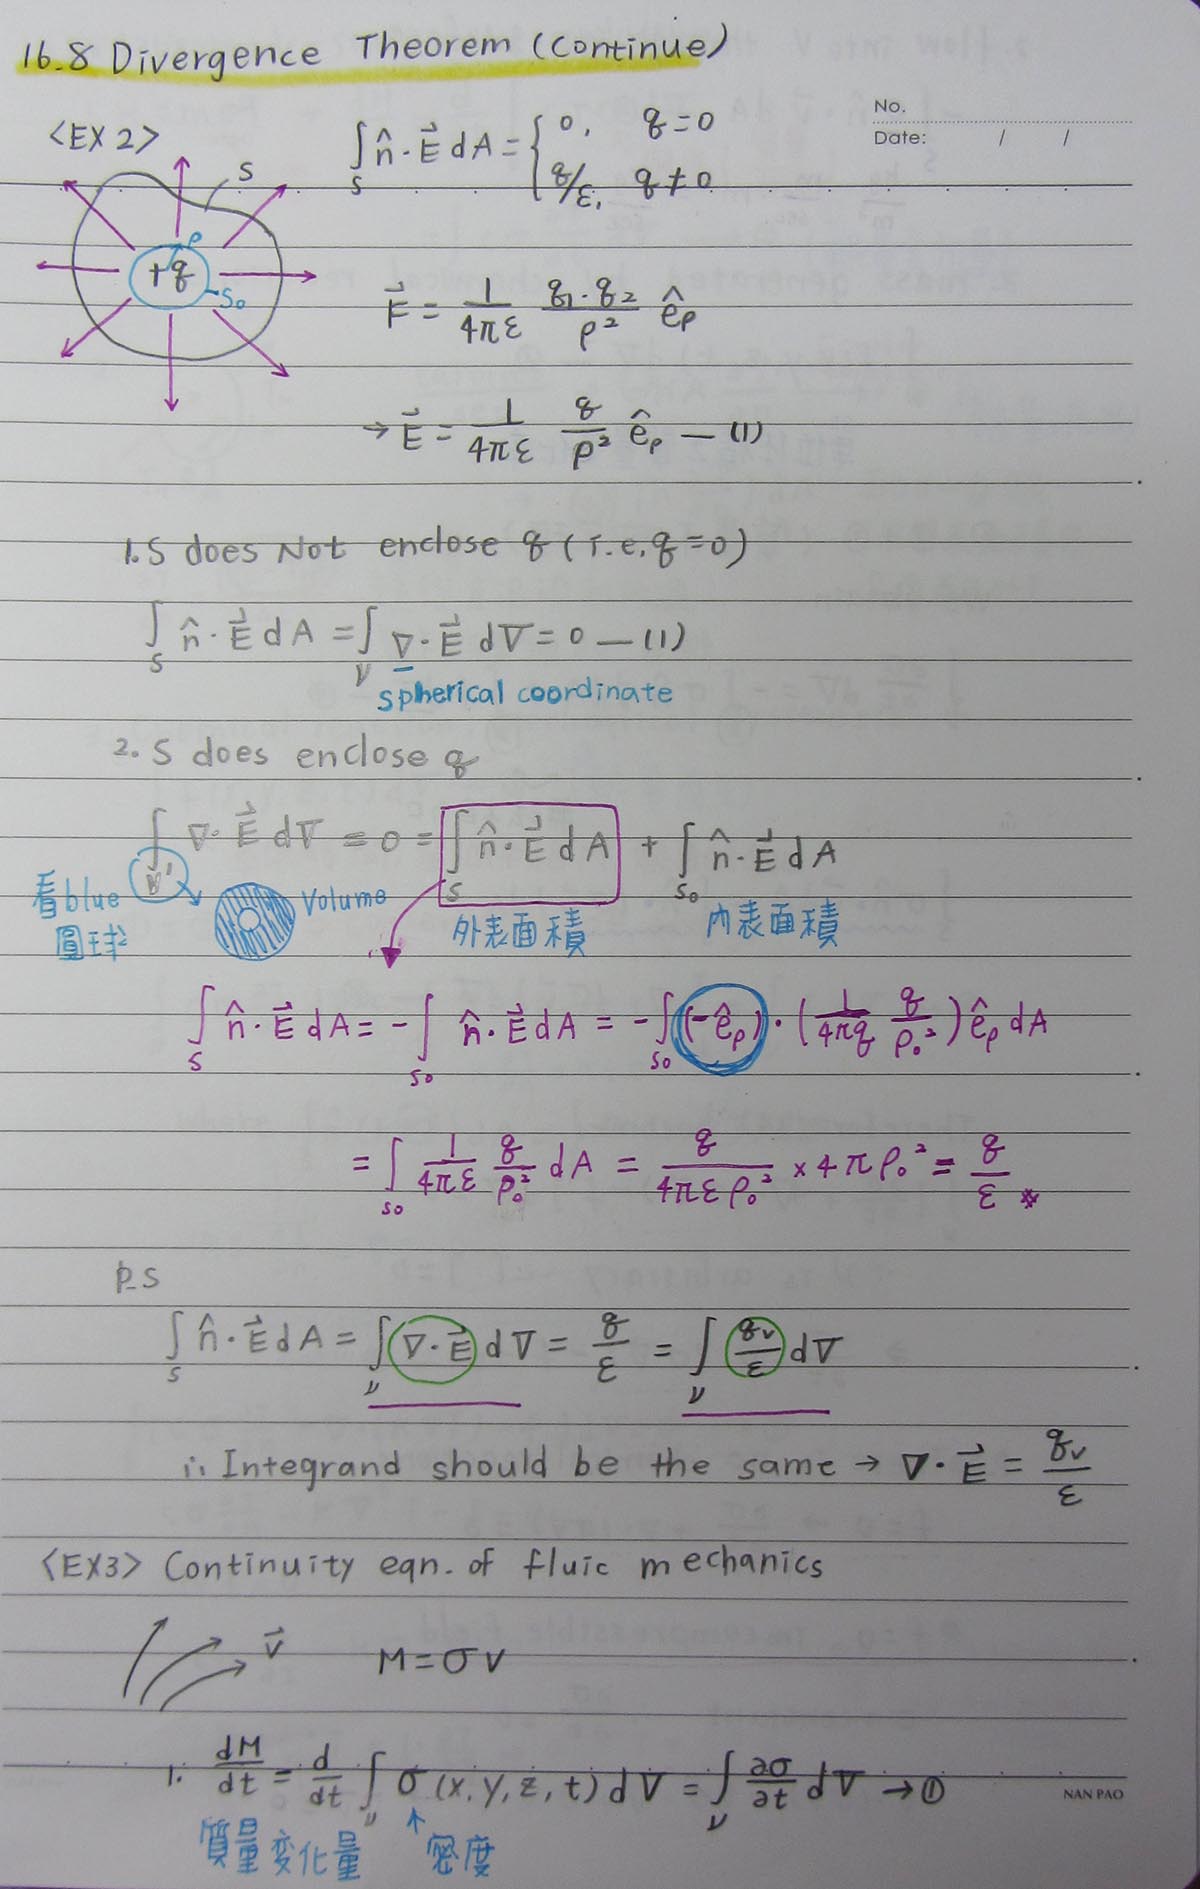 16.8 Divergence Theorem (Continue)
No.
Date: / /
<EX 2>
∫_S n̂·E⃗ dA = { 0, q=0
q/ε, q≠0
S
ρ
+q
S₀
F⃗ = 1/4πε q₁·q₂/ρ² ê_ρ
→ E⃗ = 1/4πε q/ρ² ê_ρ — (1)
1. S does Not enclose q (i.e, q=0)
∫_S n̂·E⃗ dA = ∫_V ∇·E⃗ dV = 0 — (1)
spherical coordinate
2. S does enclose q
∫_V' ∇·E⃗ dV = 0 = ∫_S n̂·E⃗ dA + ∫_S₀ n̂·E⃗ dA
看blue
圓球
Volume
外表面積
內表面積
∫_S n̂·E⃗ dA = -∫_S₀ n̂·E⃗ dA = -∫_S₀ (-ê_ρ)·(1/4πq q/ρ₀²) ê_ρ dA
= ∫_S₀ 1/4πε q/ρ₀² dA = q/4περ₀² × 4πρ₀² = q/ε *
p.s
∫_S n̂·E⃗ dA = ∫_V ∇·E⃗ dV = q/ε = ∫_V q_v/ε dV
∴ Integrand should be the same → ∇·E⃗ = q_v/ε
<EX3> Continuity eqn. of fluic mechanics
v⃗
M = σV
1. dM/dt = d/dt ∫_V σ(x,y,z,t) dV = ∫_V ∂σ/∂t dV → ①
質量变化量
↑ 密度
NAN PAO